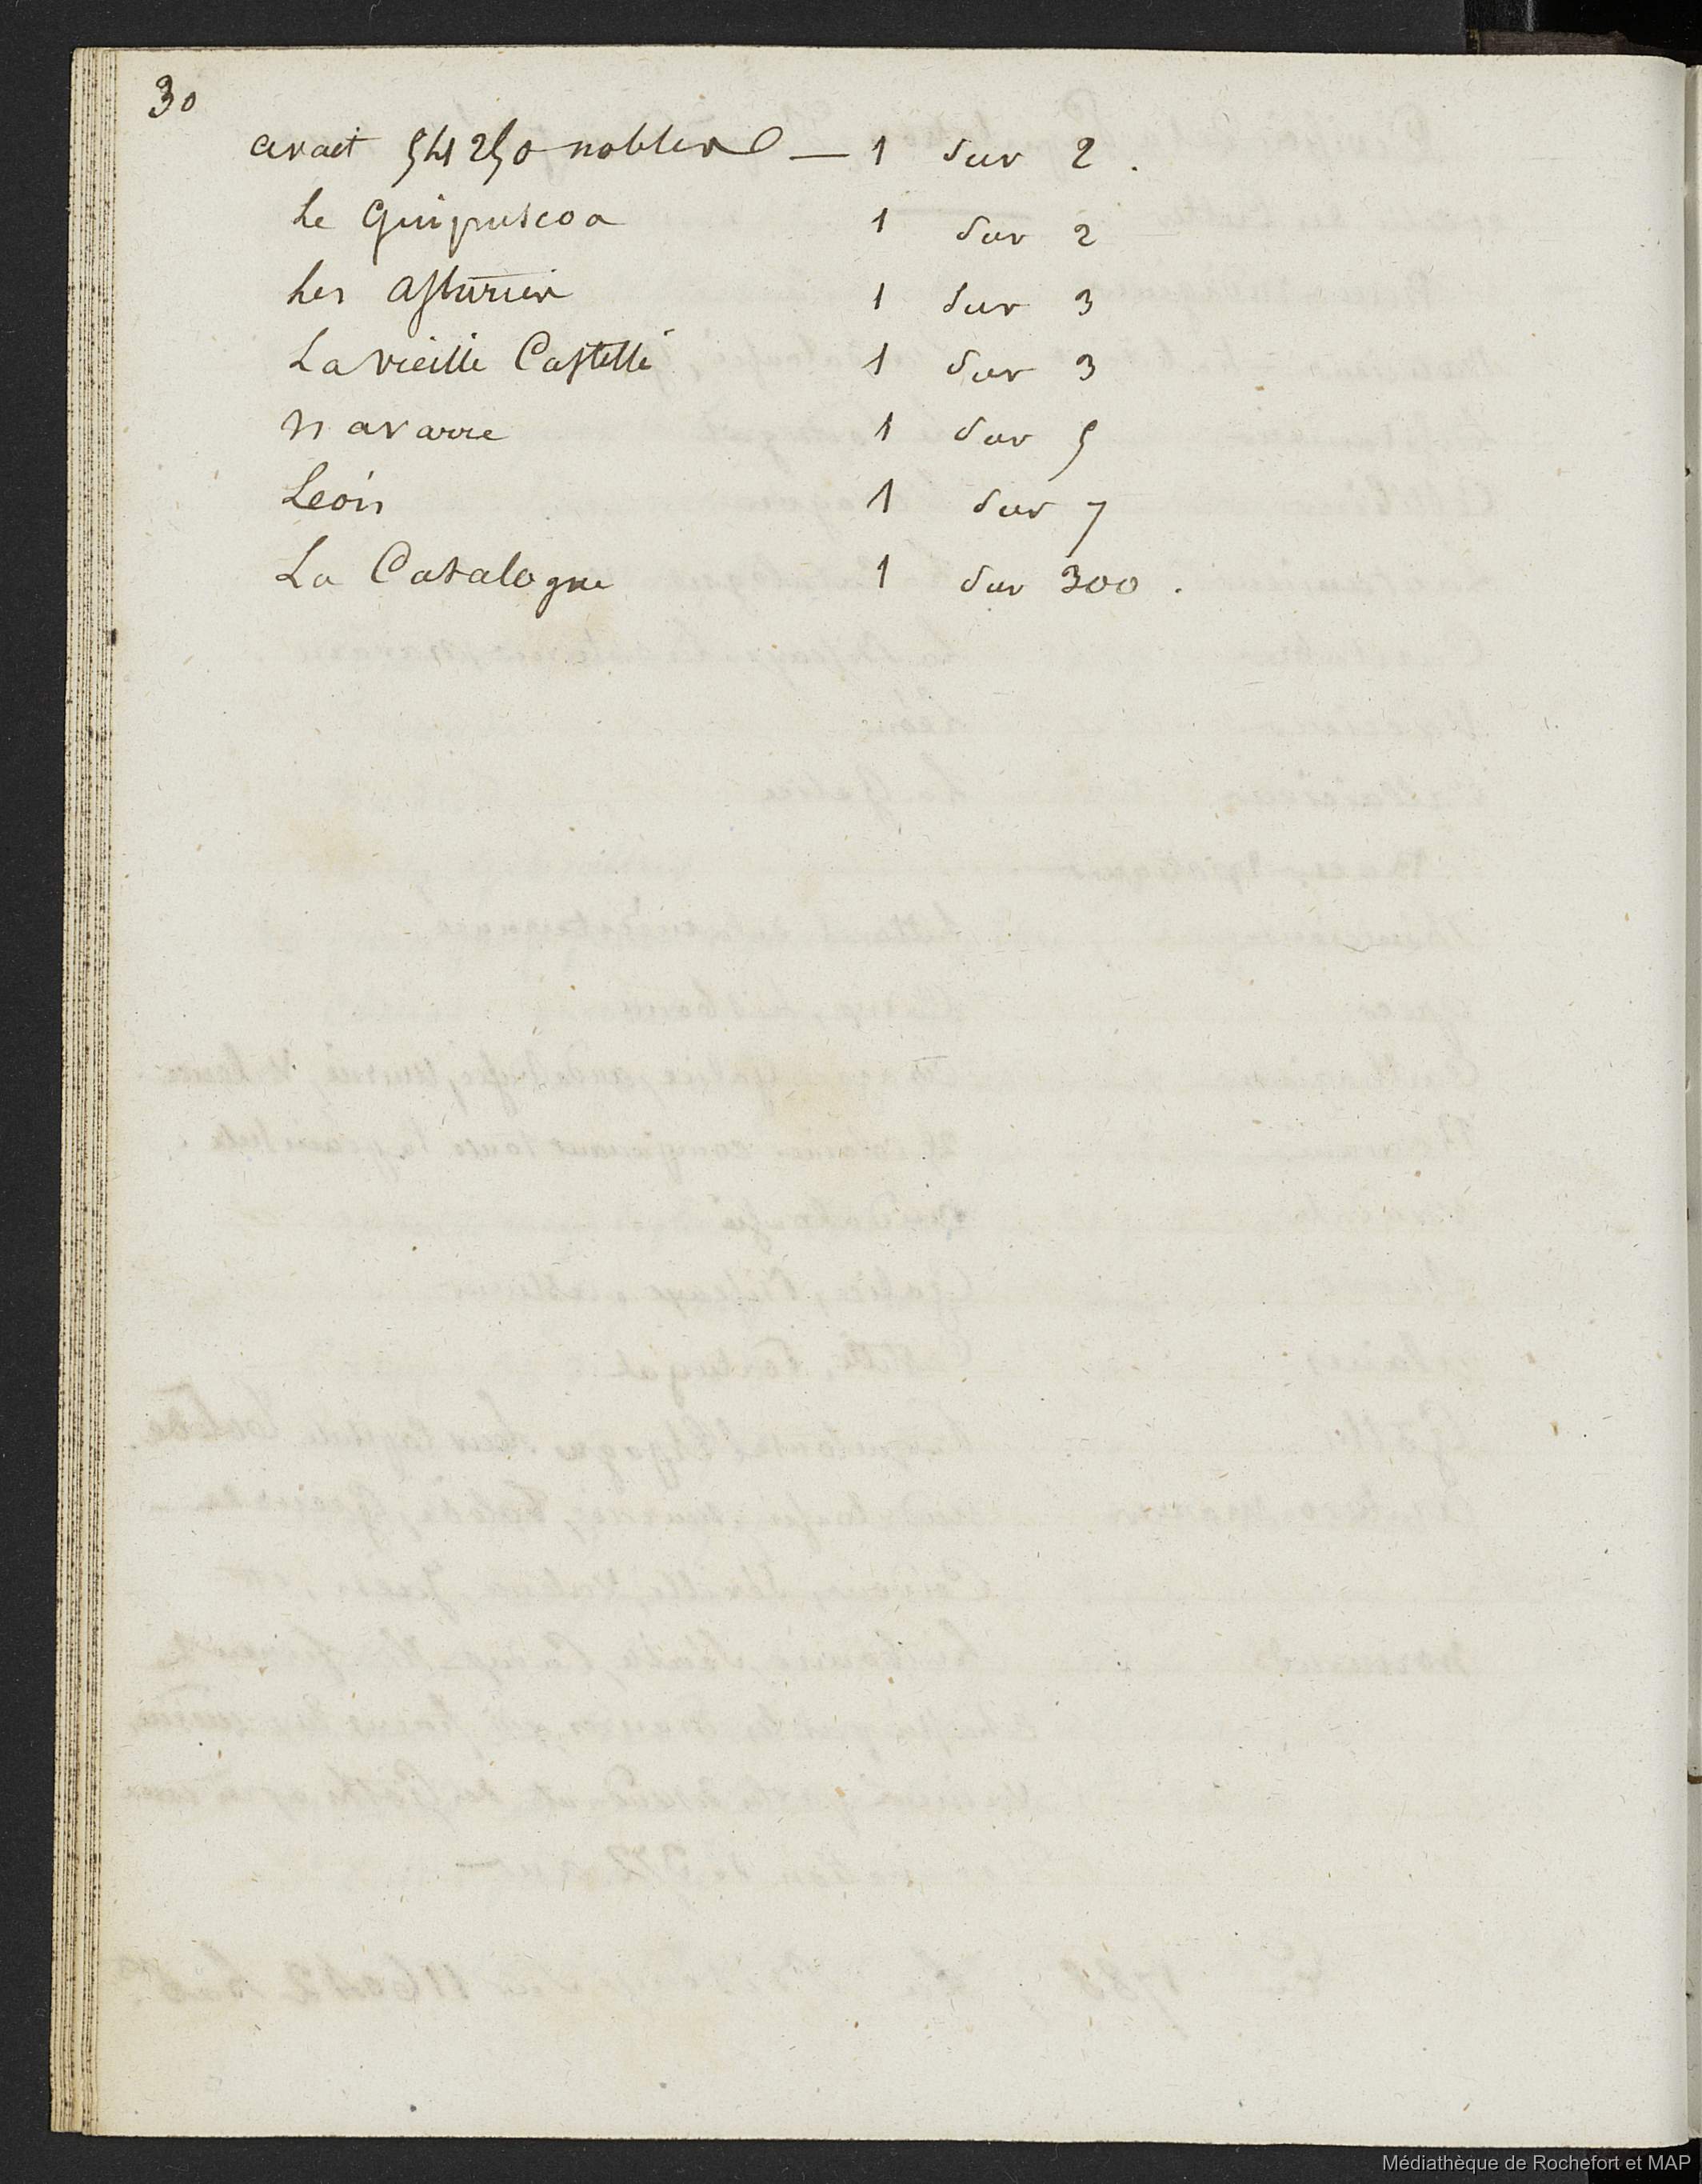 30
avait 54250 nobles — 1 sur 2.
Le Guipuscoa 1 sur 2
Les Asturies 1 sur 3
La vieille Castille 1 sur 3
Navarre 1 sur 5
Léon 1 sur 7
La Catalogne 1 sur 300.
Médiathèque de Rochefort et MAP